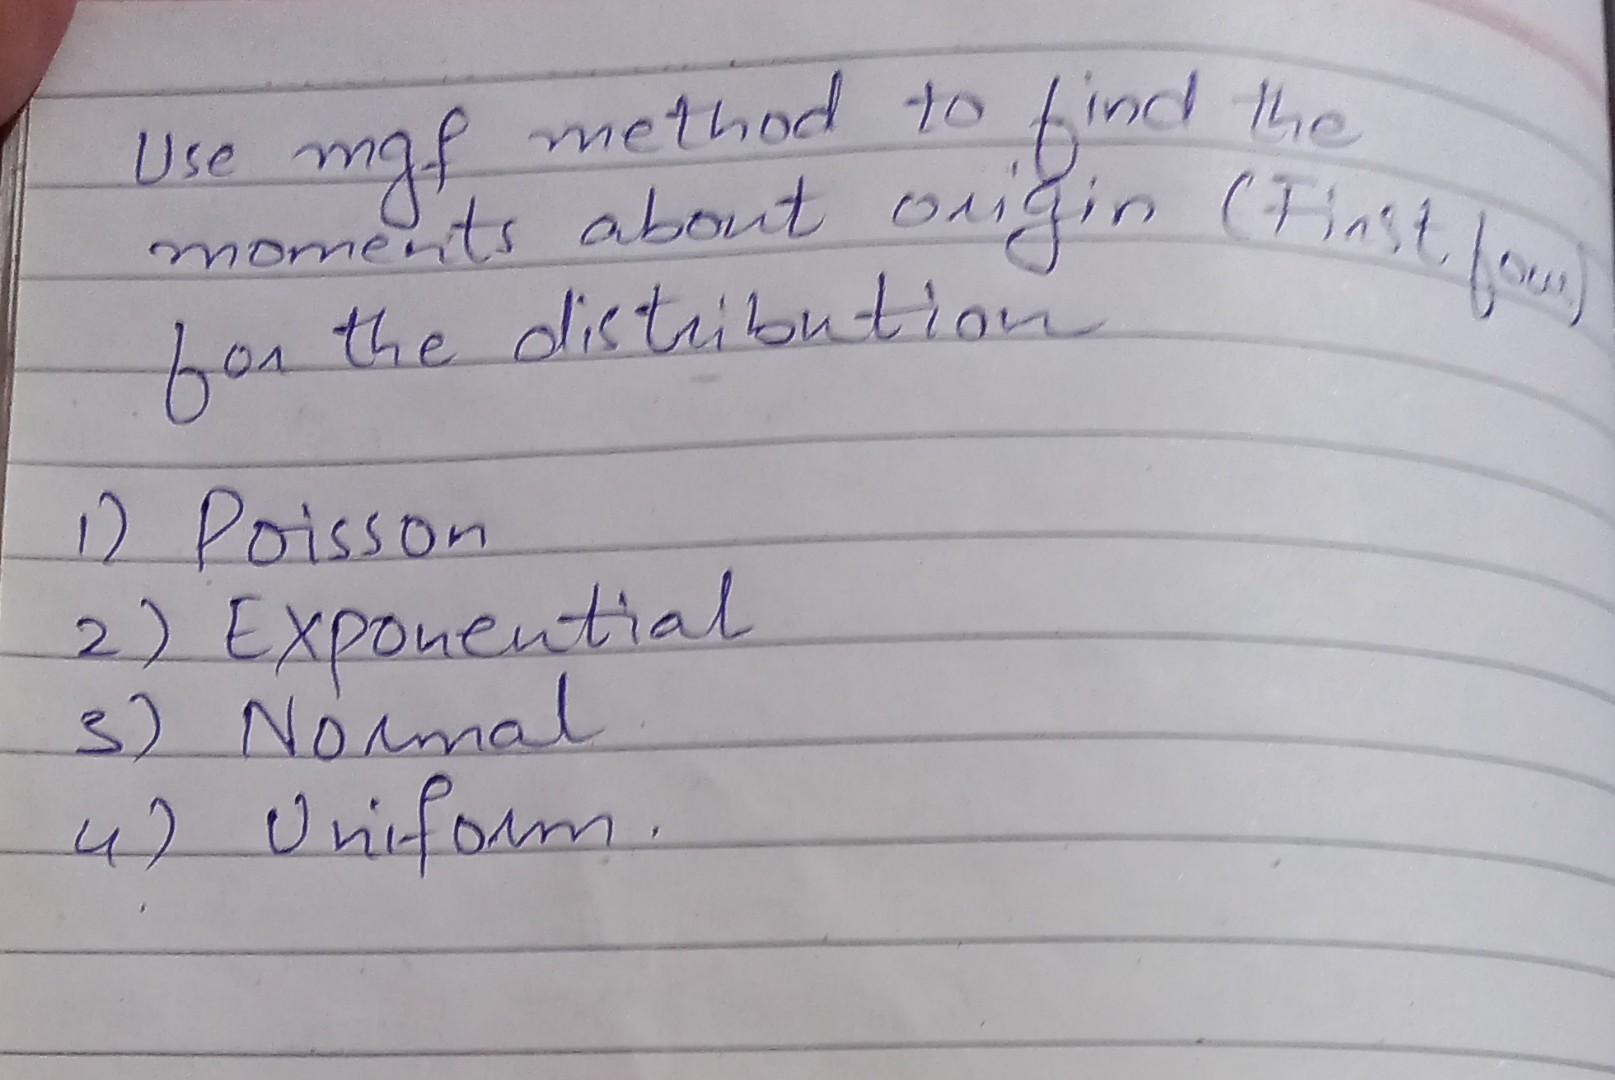 Use mgf method to find the
moments about origin (First four)
for the distribution
1) Poisson
2) Exponential
3) Normal
4) Uniform.